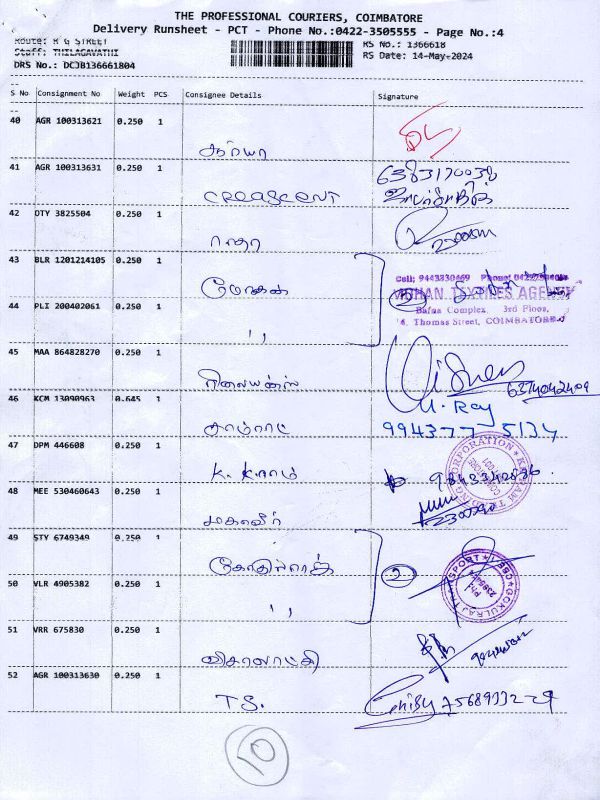 THE PROFESSIONAL COURIERS, COIMBATORE
Delivery Runsheet - PCT - Phone No.:0422-3505555 - Page No.:4
Route: R G STREET
Staff: THILAGAVATHI
DRS No.: DCJB136661804
RS No.: 1366618
RS Date: 14-May-2024
S No Consignment No Weight PCS Consignee Details Signature
40 AGR 100313621 0.250 1
சூர்யா
41 AGR 100313631 0.250 1
CREASCENT
6383170038
42 DTY 3825504 0.250 1
ராதா
43 BLR 1201214105 0.250 1
மோகன்
Cell; 9443330469 Phone:
MOHAN TEXTILES AGENCY
Bafna Complex, 3rd Floor,
Thomas Street, COIMBATORE
44 PLI 200402061 0.250 1
,,
45 MAA 864828270 0.250 1
ரிலையன்ஸ்
6374042409
46 KCM 13090963 0.645 1
சாம்ராட்
U. Ray
994377 5134
47 DPM 446608 0.250 1
K. K.ராம்
CORPORATION
48 MEE 530460643 0.250 1
மகாவீர்
49 STY 6749349 0.250 1
கோகுல்ராஜ்
2
GOKULRAJ TRANSPORT
50 VLR 4905382 0.250 1
,,
51 VRR 675830 0.250 1
விசாலாட்சி
52 AGR 100313630 0.250 1
T.S.
10